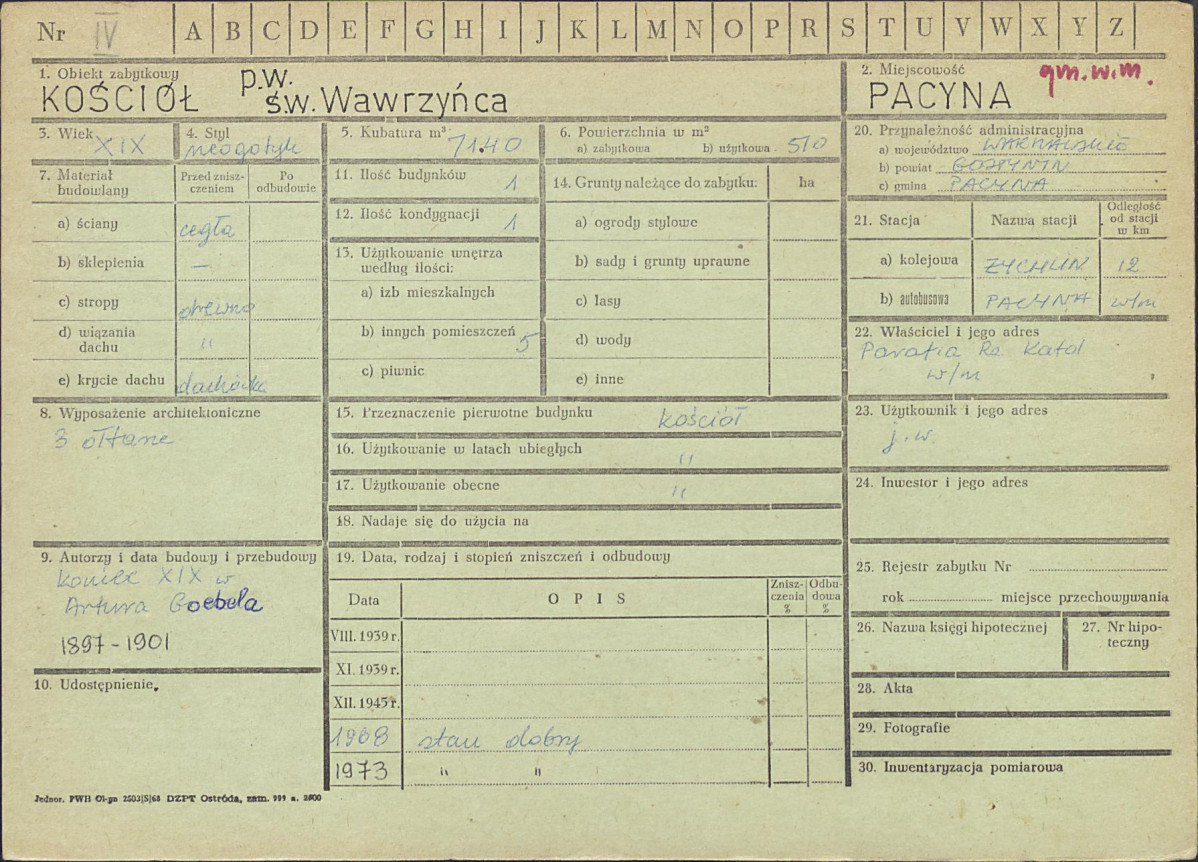 Nr IV A B C D E F G H I J K L M N O P R S T U V W X Y Z
1. Obiekt zabytkowy
KOŚCIÓŁ p.w. św. Wawrzyńca
2. Miejscowość gm. w.m.
PACYNA
3. Wiek XIX
4. Styl neogotyk
5. Kubatura m³ 7140
6. Powierzchnia w m²
a) zabytkowa b) użytkowa 510
7. Materiał budowlany
Przed znisz-
czeniem
Po
odbudowie
a) ściany cegła
b) sklepienia —
c) stropy drewno
d) wiązania
dachu "
e) krycie dachu dachówka
8. Wyposażenie architektoniczne
3 ołtarze
9. Autorzy i data budowy i przebudowy
koniec XIX w
Artura Goebela
1897-1901
10. Udostępnienie
11. Ilość budynków 1
12. Ilość kondygnacji 1
13. Użytkowanie wnętrza
według ilości:
a) izb mieszkalnych
b) innych pomieszczeń 5
c) piwnic
14. Grunty należące do zabytku: ha
a) ogrody stylowe
b) sady i grunty uprawne
c) lasy
d) wody
e) inne
15. Przeznaczenie pierwotne budynku kościół
16. Użytkowanie w latach ubiegłych "
17. Użytkowanie obecne "
18. Nadaje się do użycia na
19. Data, rodzaj i stopień zniszczeń i odbudowy
Data OPIS
Znisz-
czenia
%
Odbu-
dowa
%
VIII. 1939 r.
XI. 1939 r.
XII. 1945 r.
1968 stan dobry
1973 " "
20. Przynależność administracyjna
a) województwo
b) powiat GOSTYNIN
c) gmina PACYNA
21. Stacja Nazwa stacji
Odległość
od stacji
w km
a) kolejowa ŻYCHLIN 12
b) autobusowa PACYNA w/m
22. Właściciel i jego adres
Parafia Rz. Katol
w/m
23. Użytkownik i jego adres
j.w.
24. Inwestor i jego adres
25. Rejestr zabytku Nr
rok miejsce przechowywania
26. Nazwa księgi hipotecznej
27. Nr hipo-
teczny
28. Akta
29. Fotografie
30. Inwentaryzacja pomiarowa
Jednor. PWH Ol-gn 2503|S|65 DZPT Ostróda, zam. 999 n. 2800